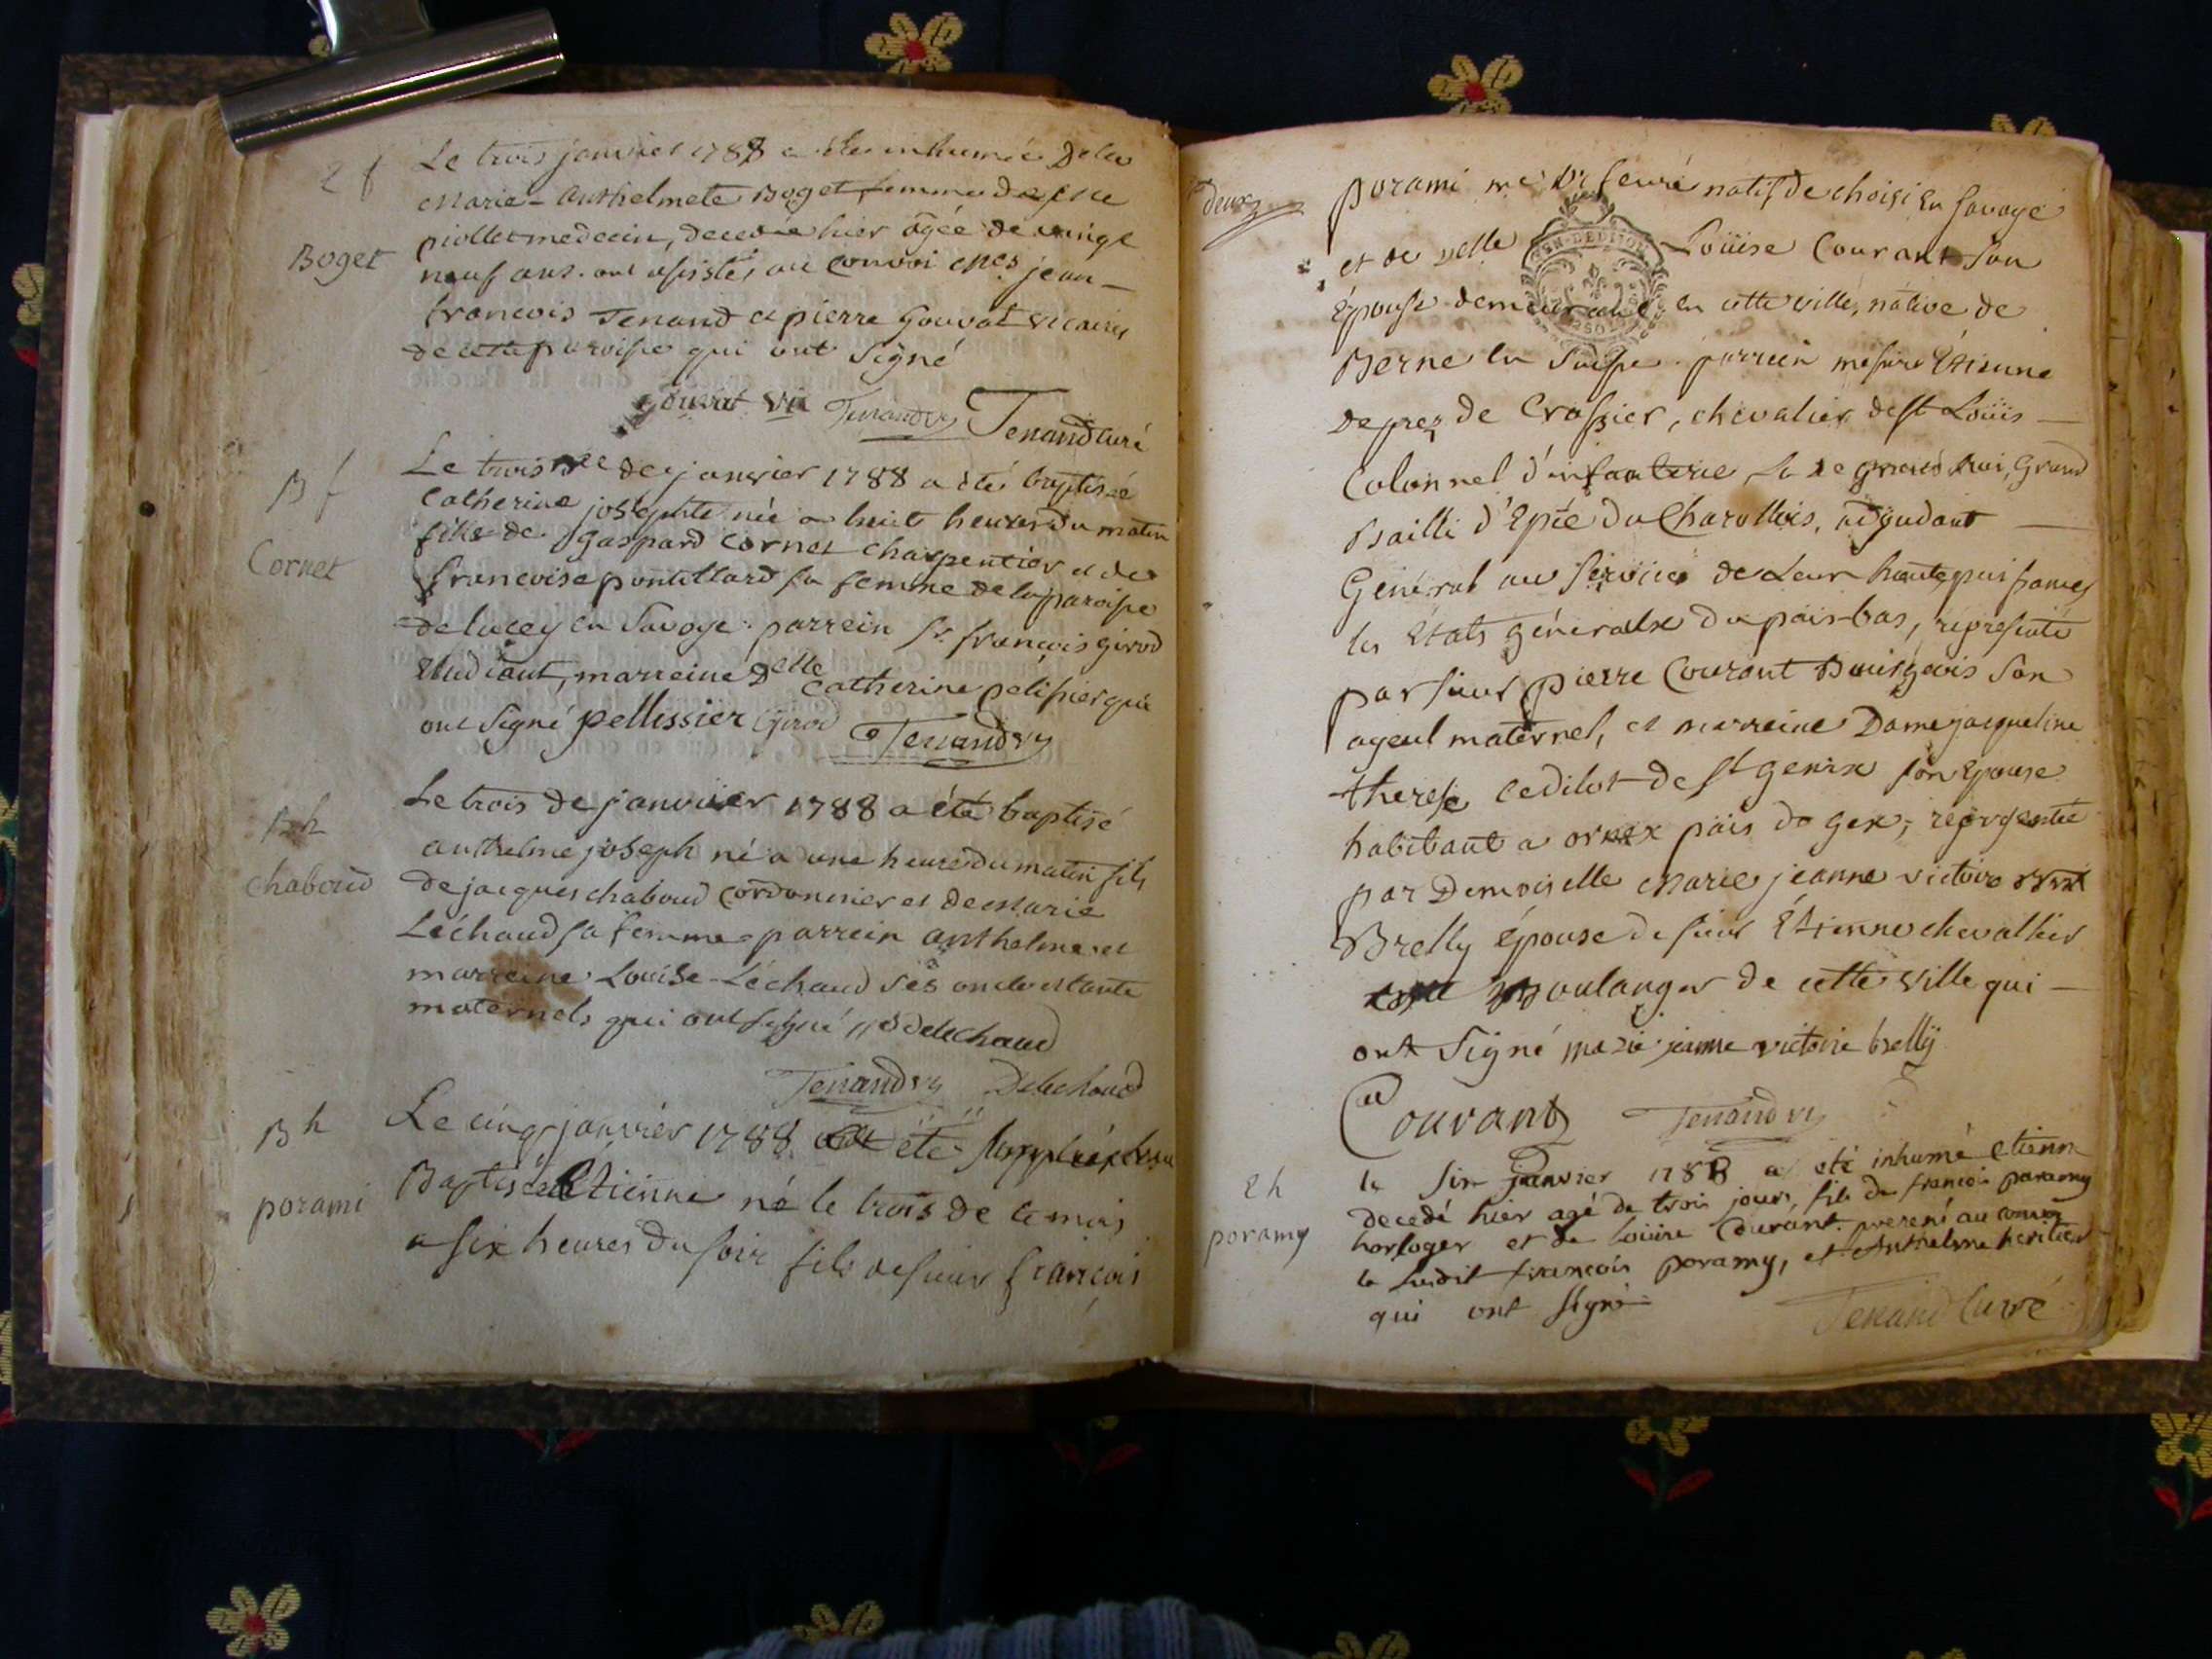 2 f
Boget
Le trois janvier 1788 a été inhumée Delle
Marie-Anthelmete Boget, femme de
piollet medecin, decedée hier âgée de vingt
neuf ans. ont assistés au convoi Mes jean-
francois Tenand et pierre Gouvat vicaires
de cette paroisse qui ont signé
Gouvat vic Tenand vic Tenand curé
B f
Cornet
Le trois de janvier 1788 a été baptisée
Catherine josephte née a huit heures du matin
fille de Gaspard Cornet charpentier et de
francoise pontillard sa femme de la paroisse
de lucey en Savoye. parrein Sr. françois girod
Etudiant, marreine Delle Catherine pelissier qui
ont signé pellissier Girod Tenand vic
B h
chaboud
Le trois de janvier 1788 a été baptisé
Anthelme joseph né a une heure du matin fils
de jacques chaboud cordonnier et de Marie
Léchaud sa femme parrein anthelme et
marreine Louise Léchaud ses oncle et tante
maternels qui ont signé // Delechaud
Tenand vic Delechaud
B h
porami
Le cinq janvier 1788 été
Baptisé Etienne né le trois de ce mois
a six heures du soir fils de sieur françois
deux
porami natif de choisi en Savoye
et de delle Loüise Courant son
Épouse demeurant en cette ville, native de
Berne en Suisse. parrein messire Etienne
Deprez de Crassier, chevalier de st Loüis —
Colonnel d'infanterie, Grand
Bailli d'Epée du Charollois, adjudant —
Général au service de Leur hautes puissances
les Etats généralx du païs-bas, représenté
par sieur pierre Courant Bourgeois son
ayeul maternel, et marreine Dame jacqueline
therese Cedilot de St genix son Epouse
habitant a ornex païs de gex; représentée
par Demoiselle Marie jeanne victoire
Brelly épouse de sieur Étienne chevallier
Boulanger de cette ville qui —
ont signé marie jeanne victoire brelly
Courant Tenand vic
2 h
poramy
le six janvier 1788 a été inhumé etienne
decedé hier agé de trois jours, fils de francois poramy
horloger et de louise Courant. present au convoi
le susdit francois poramy, et Anthelme heritier
qui ont signé Tenand Curé